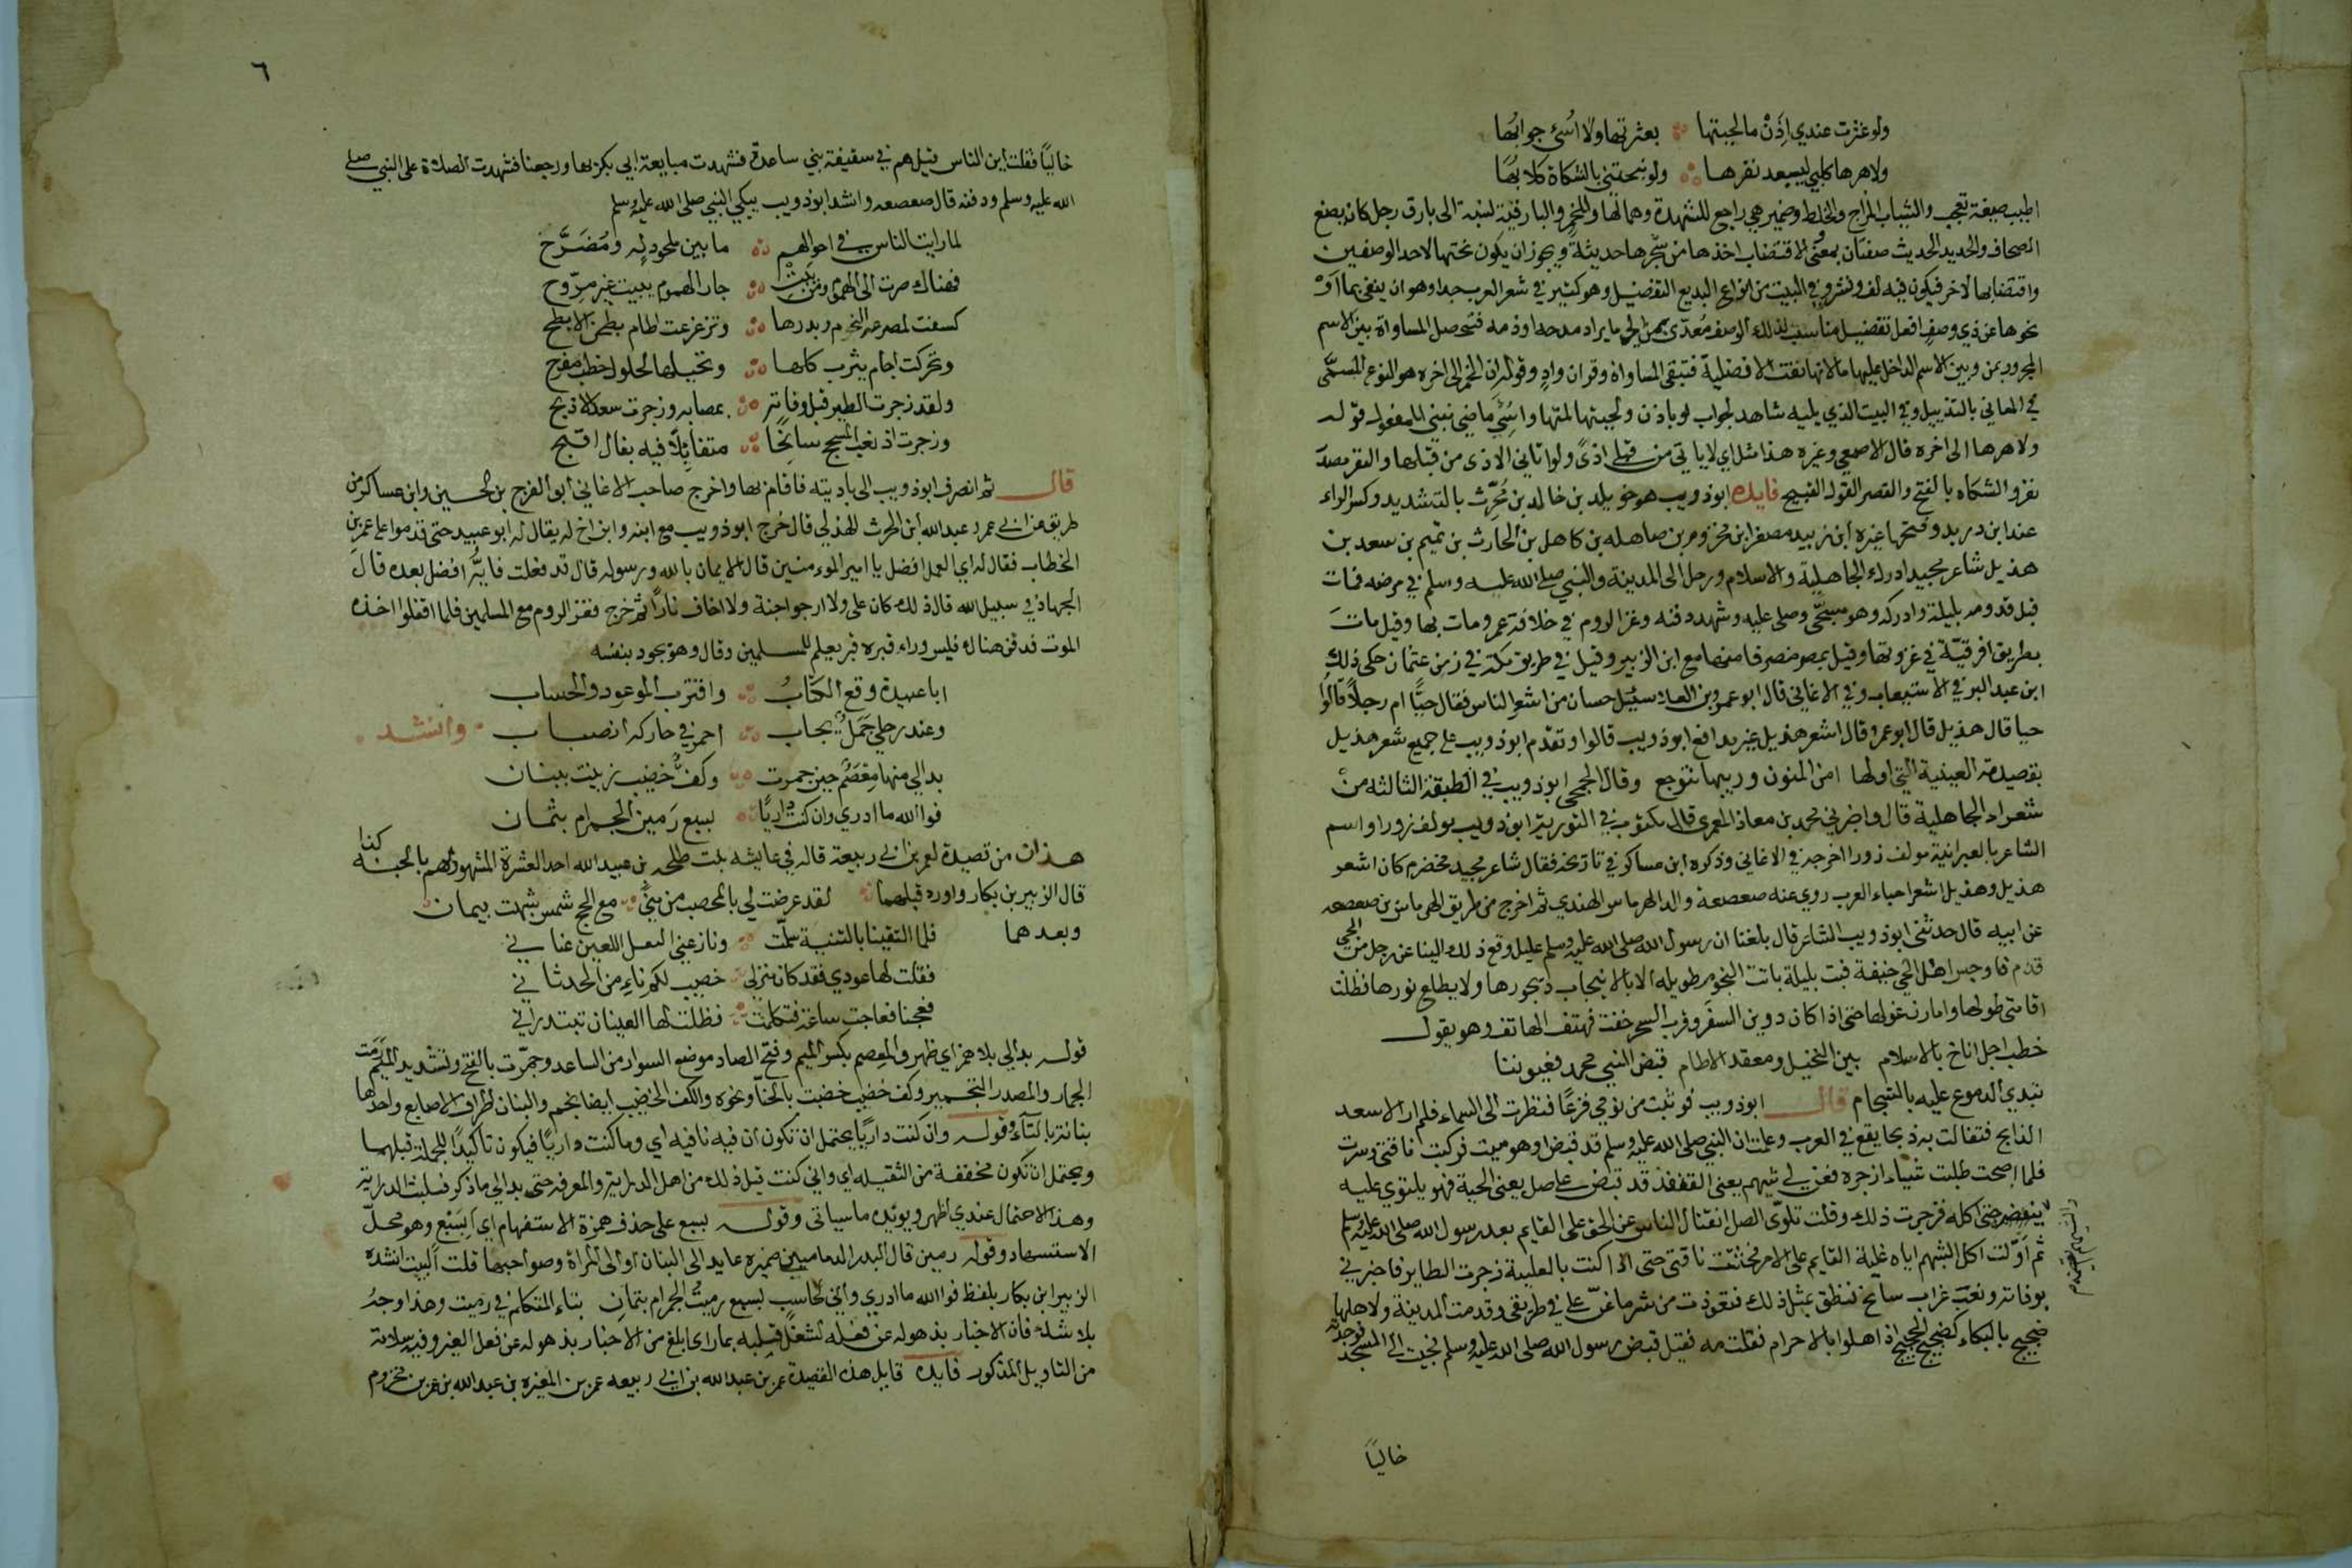 ولو عثرت عندي اذن ما لحيتها بعثرتها ولا اسئ جوابها
ولا هرها كلبي ليبعد نفرها ولو نبحتني بالشكاة كلابها
اطيب صيغة تعجب والشياب المزاج والخلط وضمير هي راجع للشهدة وهما لها وللخمر والبارقية نسبة الى بارق رجل كان يصنع
الصحاف والحديد الحديث صفتان بمعنى والاقتضاب اخذها من شجرها حديثة ويجوز ان يكون نحتها لاحد الوصفين
واقتضابها لاخر فيكون فيه لف ونشر وفي البيت من انواع البديع التفضيل وهو كثير في شعر العرب جدا وهو ان ينفى بما او
نحوها عن ذي وصف افعل تفضيل مناسب لذلك الوصف معدّى بمن الى ما يراد مدحه او ذمه فتحصل المساواة بين الاسم
المجرور بمن وبين الاسم الداخل عليها ما لانها نفت الافضلية فتبقى المساواة وقوله ان الخمر الى اخره هو النوع المسمّى
في المعاني بالتذييل وفي البيت الذي يليه شاهد لجواب لو باذن ولحيتها لمتها واسئ ماضي نبني للمفعول قوله
ولا هرها الى اخره قال الاصمعي وغيره هذا مثل اي لا ياتي من قبلي اذى ولو اتاني الاذى من قبلها والنفر مصدر
نفر والشكاه بالفتح والقصر القول القبيح فايده ابو ذويب هو خويلد بن خالد بن محرّث بالتشديد وكسر الراء
عند ابن دريد وفتحها غيره ابن زبيد مصغر ابن مخزوم بن صاهله بن كاهل بن الحارث بن تميم بن سعد بن
هذيل شاعر مجيد ادرك الجاهلية والاسلام ورحل الى المدينة والنبي صلى الله عليه وسلم في مرضه فمات
قبل قدومه بليلة وادركه وهو مسجّى وصلى عليه وشهد دفنه وغزا الروم في خلافة عمر ومات بها وقيل مات
بطريق افرقيّة في غزوتها وقيل بمصر منصرفا منها مع ابن الزبير وقيل في طريق مكة في زمن عثمان حكى ذلك
ابن عبد البر في الاستيعاب وفي الاغاني قال ابو عمرو بن العلا سئيل حسان من اشعر الناس فقال حيّا ام رجلا قالوا
حيا قال هذيل قال ابو عمرو قال اشعر هذيل غير مدافع ابو ذويب قالوا وتقدم ابو ذويب على جميع شعر هذيل
بقصيدته العينية التي اولها امن المنون وريبها تتوجع وقال الجمحي ابو ذويب في الطبقة الثالثه من
شعراء الجاهلية قال واخبرني محمد بن معاذ المعمري قال مكتوب في التوريه ابو ذويب مولف زورا واسم
الشاعر بالعبرانية مولف زورا اخرجه في الاغاني وذكره ابن عساكر في تاريخه فقال شاعر مجيد مخضرم كان اشعر
هذيل وهذيل اشعر احياء العرب روى عنه صعصعة والد الهرماس الهندي ثم اخرج من طريق الهرماس بن صعصعه
عن ابيه قال حدثني ابو ذويب الشاعر قال بلغنا ان رسول الله صلى الله عليه وسلم عليل وقع ذلك الينا عن رجل من الحي
قدم فاوجس اهل الحي خيفة فبت بليلة باتت النجوم طويله الاناة لا ينجاب ديجورها ولا يطلع نورها فظلت
اقاسي طولها واقارن غولها حتى اذا كان دوين السفر وقرب السحر خفت فهتف الهاتف وهو يقول
خطب اجل اناخ بالاسلام بين النخيل ومعقد الاطام قبض النبي محمد فعيوننا
تبدي الدموع عليه بالتسجام قال ابو ذويب فوثبت من نومي فزعا فنظرت الى السماء فلم ار الا سعد
الذابح فتفالت به ذبحا يقع في العرب وعلمت ان النبي صلى الله عليه وسلم قد قبض او هو ميت فركبت ناقتي وسرت
فلما اصبحت طلبت شياء ازجره فعن لي شيهم يعني القفنفذ قد قبض على صل يعني الحية فهو يلتوي عليه
ينهضم حتى اكله فزجرت ذلك وقلت تلوّي الصل انفتال الناس عن الحق على القايم بعد رسول الله صلى الله عليه وسلم
ثم اوّلت اكل الشيهم اياه غلبة القايم على الامر فحثثت ناقتي حتى اذا كنت بالعلية زجرت الطاير فاخبرني
بوفاته ونعب غراب سانح فنطق بمثل ذلك فتعوذت من شر ما عنّ لي في طريقي وقدمت المدينة ولاهلها
ضجيج بالبكاء كضجيج الحجيج اذا اهلوا بالاحرام فقلت مه فقيل قبض رسول الله صلى الله عليه وسلم فجيت الى المسجد فوجدته
خاليا
٦
خاليا فقلت اين الناس فقيل هم في سقيفة بني ساعدة فشهدت مبايعة ابي بكر بها ورجعنا فشهدت الصلاة على النبي صلى
الله عليه وسلم ودفنه قال صعصعه وانشد ابو ذويب يبكي النبي صلى الله عليه وسلم
لما رايت الناس في احوالهم ما بين ملحود له ومضرّح
فهناك صرت الى الهموم ومن يبت جار الهموم يبيت غير مروّح
كسفت لمصرعه النجوم وبدرها وتزعزعت اطام بطن الابطح
وتحركت اجام يثرب كلها ونخيلها لحلول خطب مفرح
ولقد زجرت الطير قبل وفاته بمصابه وزجرت سعد الاذبح
وزجرت اذ نعب المشحج سانحا متفايلا فيه بفال اقبح
قال ثم انصرف ابو ذويب الى باديته فاقام بها واخرج صاحب الاغاني ابو الفرج بن الحسين وابن عساكر من
طريق عن ابي عمرو عبد الله ابن الحرث الهذلي قال خرج ابو ذويب مع ابنه وابن اخ له يقال له ابو عبيد حتى قدموا على عمر بن
الخطاب فقال له اي العمل افضل يا امير المومنين قال الايمان بالله ورسوله قال قد فعلت فايّه افضل بعده قال
الجهاد في سبيل الله قال ذلك كان علي ولا ارجو اجنة ولا اخاف نارا ثم خرج فغز الروم مع المسلمين فلما اقفلوا اخذه
الموت فدفن هناك فليس وراء قبره قبر يعلم للمسلمين وقال وهو يجود بنفسه
ابا عبيدة وقع الكتاب واقترب الموعود والحساب
وعند رحلي جمل نجاب احمر في حاركه انصباب وانشد
بدا لي منها معصم حين جمرت وكف خضيب زينت ببنان
فوا الله ما ادري وان كنت داريا بسبع رمين الجمرام بثمان
هذان من قصيدة لعمر بن ابي ربيعة قاله في عايشه بنت طلحه بن عبيد الله احد العشرة المشهود لهم بالجنه كذا
قال الزبير بن بكار واورد قبلهما لقد عرضت لي بالمحصب من منى مع الحج شمس شبهت بيمان
وبعدهما فلما التقينا بالثنية سلمت ونازعني البغل اللعين عناني
فقلت لها عودي فقد كان منزلي خصيب لكم ناء من الحدثاني
فعجنا فعاجت ساعة فتكلمت فظلت لها العينان تبتدراني
قوله بدا لي بلا همز اي ظهر والمعصم بكسر الميم وفتح الصاد موضع السوار من الساعد وجمرت بالفتح وتشديد الميم رمت
الجمار والمصدر التجمير وكف خضيب خضبت بالحنا ونحوه والكف الخضيب ايضا نجم والبنان اطراف الاصابع واحدها
بنانة بالتاء وقوله وان كنت داريا يحتمل ان تكون ان فيه نافيه اي وما كنت داريا فيكون تاكيدا للجملة قبلها
ويحتمل ان تكون مخففة من الثقيله اي واني كنت قبل ذلك من اهل الدراية والمعرفه حتى بدا لي ما ذكر فسلبت الدراية
وهذا الاحتمال عندي اظهر ويويده ما سياتي وقوله بسبع على حذف همزة الاستفهام اي ابسبع وهو محل
الاستشهاد وقوله رمين قال البدر الدماميني ضميره عايد الى البنان او الى المراة وصواحبها قلت البيت انشده
الزبير ابن بكار بلفظ فوا الله ما ادري واني لحاسب بسبع رميت الجمرام بثمان بتاء المتكلم في رميت وهذا وجه
بلا شك فان الاخبار بذهوله عن فعله لشغل قلبه بما راى ابلغ من الاخبار بذهوله عن فعل الغير وفيه سلامة
من التاويل المذكور فايده قايل هذه القصيدة عمر بن عبد الله بن ابي ربيعه عمر بن المغيره بن عبد الله بن عمر بن مخزوم